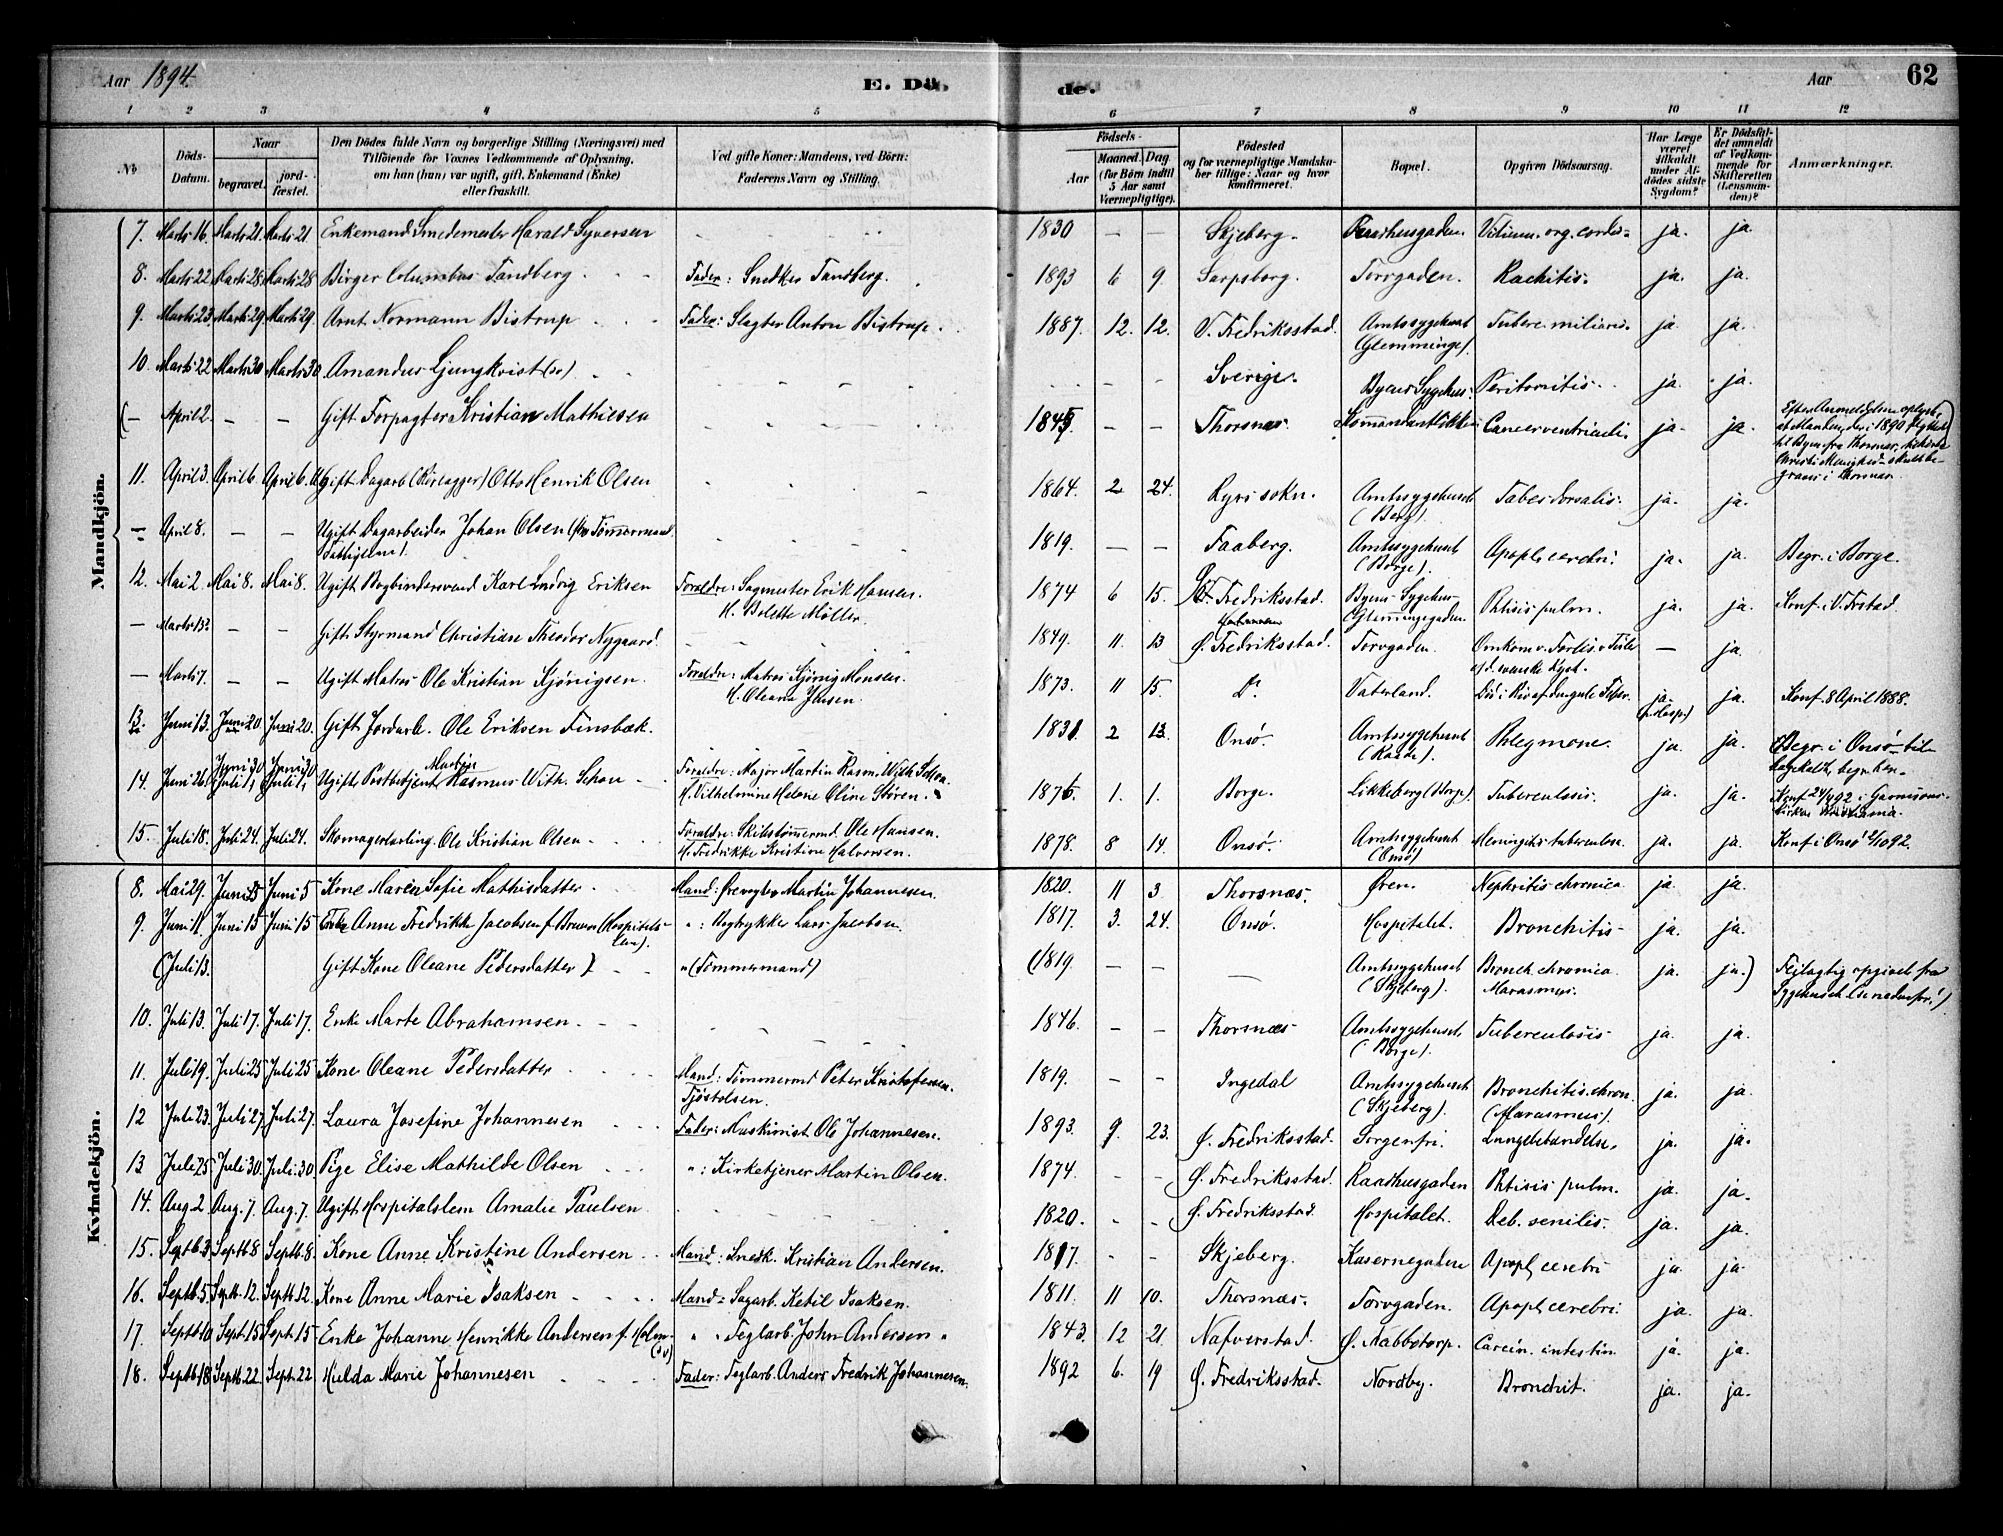 Aar 1894
E. Dö de.
Aar 62
1 2 3 4 5 6 7 8 9 10 11 12
No
Döds-Datum.
Naar
begravet.
jord-fæstet.
Den Dödes fulde Navn og borgerlige Stilling (Næringsvei) med
Tilföiende for Voxnes Vedkommende af Oplysning,
om han (hun) var ugift, gift, Enkemand (Enke)
eller fraskilt.
Ved gifte Koner: Mandens, ved Börn:
Faderens Navn og Stilling.
Födsels-
Aar
Maaned. Dag.
(for Börn indtil
5 Aar samt
Værnepligtige).
Födested
og for værnepligtige Mandska-
ber tillige: Naar og hvor
konfirmeret.
Bopæl.
Opgiven Dödsaarsag.
Har Læge
været
tilkaldt
under Af-
dödes sidste
Sygdom?
Er Dödsfal-
det anmeldt
af Vedkom-
mende for
Skifteretten
(Lensman-
den)?
Anmærkninger.
Mandkjön.
7. Marts 16. Marts 21. Marts 21. Enkemand Smedemester Harald Syversen 1830 — — Skjeberg. Raadhusgaden. Vitium. org. cordis. ja. ja.
8. Marts 22 Marts 28 Marts 28 Birger Columbus Tandberg Fader: Snedker Tandberg. 1893 6 9. Sarpsborg. Torvgaden. Rachitis. ja. ja.
9. Marts 23 Marts 29 Marts 29. Arnt Normann Bistrup Fader: Slagter Anton Bistrup. 1887. 12. 12. V. Fredriksstad. Amtssygehuset (Glemminge). Tuberc. miliaris. ja. ja.
10. Marts 22 Marts 30 Marts 30. Amandus Ljungkvist (sv) - - - Sverige. Byens Sygehus. Peritonitis. ja. ja.
(— April 2. — — Gift Forpagter Kristian Mathiesen 1845. — — Thorsnæs. Cancer ventriculi. ja. ja.
Efter Anmeldelsen oplyst,
at Manden, der i 1890 flyttet
til Byen fra Thorsnæs,
Kristi Menighed – skulde be-
graves i Thorsnæs.
11. April 3. April 6. April 6. Gift Dagarb. Otto Henrik Olsen. 1864. 2 24. Ryrs sokn. Amtssygehuset (Berg). Tabes dorsalis. ja. ja.
— April 8. — — Ugift Dagarbeider Johan Olsen Tømmermand 1819. — — Faaberg. Amtssygehuset (Borge). Apopl. cerebri. ja. ja. Begr. i Borge.
12. Mai 2. Mai 8. Mai 8. Ugift Bogbindersvend Karl Ludvig Eriksen Forældre: Sagmester Erik Hansen.
H. Bolette Møller. 1874 6 15. Fredriksstad. Byens Sygehus Glemmingegaden. Phtisis pulm. ja. ja. Konf. i V. Frstad.
— Marts 13? — — Gift Styrmand Christian Theodor Nygaard. 1849. 11. 13 Ø. Fredriksstad. Torvgaden. Omkom v. Forlis v.
svenske Kyst. — ja.
— Marts 7. — — Ugift Matros Ole Kristian Kjønigsen. Forældre: Matros Kjønig Monsen.
H. Oleana Jensen. 1873. 11 15. Do Vaterland. Død i Rio af Gule Feber. ja. (Hosp.) ja. Konf. 8 April 1888.
13. Juni 13. Juni 20 Juni 20. Gift Jordarb. Ole Eriksen Finsbæk. 1831 2 13. Onsø. Amtssygehuset (Raade). Phlegmone. ja. ja. Begr. i Onsø –
14. Juni 26. Juni 30 Juli 1, Juni 30 Juli 1, Ugift Postbetjent Martin Rasmus With. Schou Forældre: Major Martin Rasm. With Schou
H. Vilhelmine Helene Oline Støren. 1876. 1. 1. Borge. Likkeberg (Borge). Tuberculosis. ja. ja. Konf. 24/4 92 i Garnisons-
kirken Kristiania.
15. Juli 18. Juli 24. Juli 24. Skomagerlærling Ole Kristian Olsen Forældre: Skibstømmermd. Ole Hansen.
H. Fredrikke Kristine Halvorsen. 1878. 8 14. Onsø. Amtssygehuset (Onsø) Meningitis tuberculosa. ja. ja. Konf. i Onsø 2/10 92.
Kvindekjön.
8. Mai 29. Juni 5 Juni 5 Kone Maren Sofie Mathisdatter Mand: Martin Johannesen. 1820. 11 3 Thorsnæs. Øren. Nephritis chronica ja. ja.
9. Juni 11. Juni 15 Juni 15 Enke Anne Fredrikke Jacobsen f. Bruun (Hospitals-
lem). „ : Bogtrykker Lars Jacobsen. 1817. 3. 24. Onsø. Hospitalet. Bronchitis ja. ja.
(Juli 13. Gift Kone Oleane Pedersdatter) „ (Tømmermand) (1819. — — — Amtssygehuset (Skjeberg). Bronch. chronica Marasmus. ja. ja.) Feilagtig opgivet fra
Sygehuset (se nedenfor!)
10. Juli 13. Juli 17. Juli 17. Enke Marte Abrahamsen. 1846. — — Thorsnæs Amtssygehuset (Borge). Tuberculosis ja. ja.
11. Juli 19. Juli 25 Juli 25 Kone Oleane Pedersdatter Mand: Tømmermd Peter Kristofersen
Tjøstolsen. 1819. — — Ingedal Amtssygehuset (Skjeberg). Bronchitis chron. (Marasmus). ja. ja.
12 Juli 23. Juli 27. Juli 27. Laura Josefine Johannesen Fader: Maskinist Ole Johannesen. 1893. 9. 23. Ø. Fredriksstad. Sorgenfri. Lungebetændelse. ja. ja.
13 Juli 25 Juli 30. Juli 30. Pige Elise Mathilde Olsen „ : Kirketjener Martin Olsen. 1874. - - Ø. Fredriksstad. Raadhusgaden Phtisis pulm. ja. ja.
14. Aug. 2 Aug. 7. Aug. 7. Ugift Hospitalslem Amalie Paulsen. 1820. - - Ø. Fredriksstad. Hospitalet. Deb. senilis. ja. ja.
15. Septb. 3 Septb. 8 Septb. 8. Kone Anne Kristine Andersen Mand: Snedk. Kristian Andersen. 1817. - - Skjeberg. Kasernegaden Apopl. cerebri ja. ja.
16. Septb. 5 Septb. 12. Septb. 12. Kone Anne Marie Isaksen Mand: Sagarb. Ketil Isaksen. 1811. 11 10. Thorsnæs. Torvgaden. Apopl. cerebri. ja. ja.
17. Septb. 10 Sept. 15 Sept. 15 Enke Johanne Henrikke Andersen f. Holm (sv) „ „ Teglarb. John Andersen „ 1843. 12 21. Nafverstad. Ø. Nabbetorp. Carcin. intestin ja. ja.
18. Septb. 18 Septb. 22 Sept. 22 Hulda Marie Johannesen Fader: Teglarb. Anders Fredrik Johannesen. 1892 6. 19 Ø. Fredriksstad. Nordby. Bronchit. ja. ja.